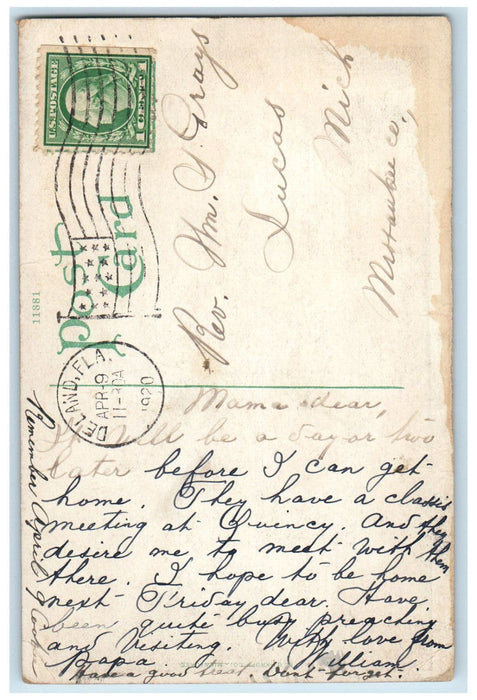 U.S. POSTAGE
Post
Card
11881
DELAND, FLA.
APR 9
11-30A
1920
Rev. Wm. S. Grays
Lucas
Mich
Missaukee Co.
Mama dear,
It will be a day or two
later before I can get
home. They have a classis
meeting at Quincy. And they
desire me to meet with them
there. I hope to be home
next Friday dear. Have
been quite busy preaching
and Visiting. With love from
Papa. William.
Have a good time. Don't forget.
Remember April 9